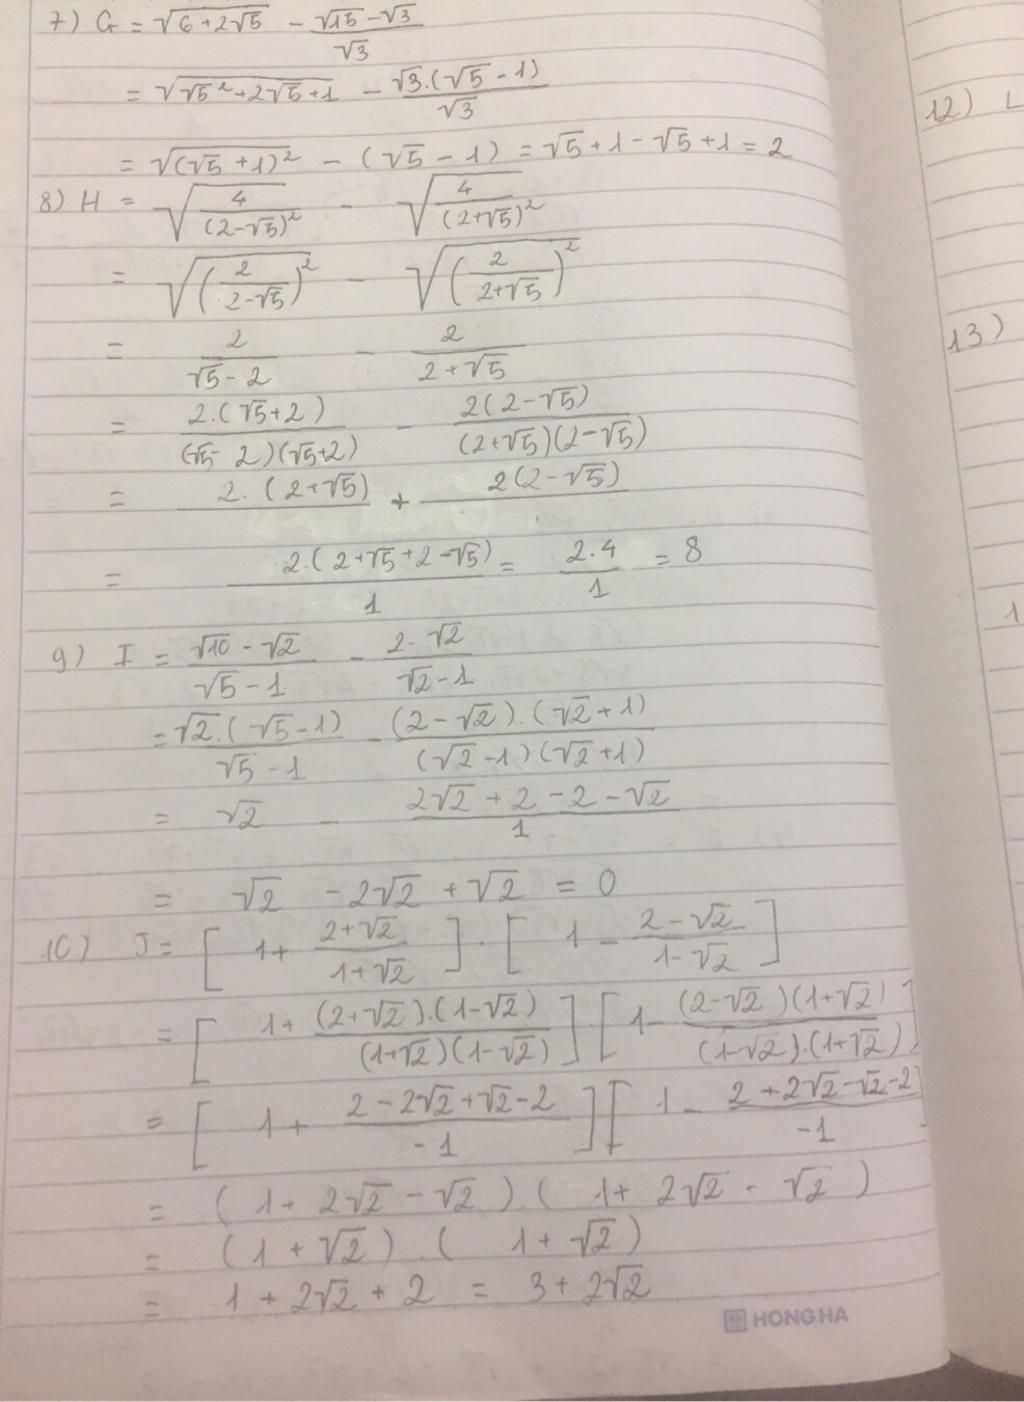 7) G = √(6+2√5) - (√15-√3)/√3
= √(√5²+2√5+1) - √3.(√5-1)/√3
= √((√5+1)²) - (√5-1) = √5+1-√5+1 = 2
8) H = √(4/(2-√5)²) - √(4/(2+√5)²)
= √((2/(2-√5))²) - √((2/(2+√5))²)
= 2/(√5-2) - 2/(2+√5)
= 2.(√5+2)/((√5-2)(√5+2)) - 2(2-√5)/((2+√5)(2-√5))
= 2.(2+√5) + 2(2-√5)
= 2.(2+√5+2-√5)/1 = 2.4/1 = 8
9) I = (√10-√2)/(√5-1) - (2-√2)/(√2-1)
= √2.(√5-1)/(√5-1) - (2-√2).(√2+1)/((√2-1)(√2+1))
= √2 - (2√2+2-2-√2)/1
= √2 - 2√2 + √2 = 0
10) J = [1+ (2+√2)/(1+√2)] . [1 - (2-√2)/(1-√2)]
= [1+ (2+√2).(1-√2)/((1+√2)(1-√2))] . [1- (2-√2)(1+√2)/((1-√2).(1+√2))]
= [1+ (2-2√2+√2-2)/-1] [1- (2+2√2-√2-2)/-1]
= (1+2√2-√2).(1+2√2-√2)
= (1+√2).(1+√2)
= 1+2√2+2 = 3+2√2
HONG HA
12) L
13)
1